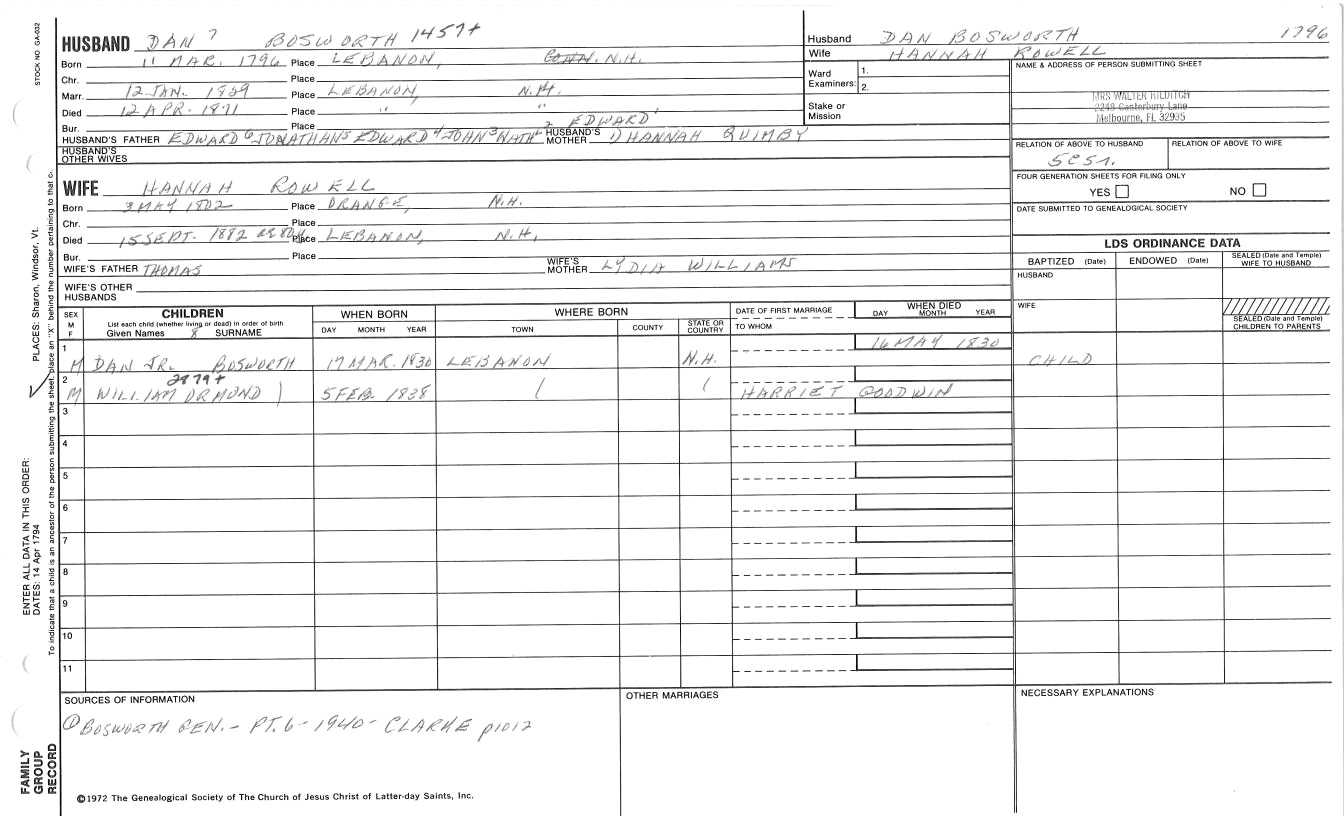 STOCK NO. GA-032
HUSBAND DAN 7 BOSWORTH 1457+
Born 11 MAR. 1796 Place LEBANON, CONN. N.H.
Chr. Place
Marr. 12 JAN. 1829 Place LEBANON, N.H.
Died 12 APR. 1871 Place " "
Bur. Place
HUSBAND'S FATHER EDWARD 6 JONATHAN 5 EDWARD 4 JOHN 3 NATH 2 EDWARD 1 HUSBAND'S MOTHER HANNAH QUIMBY
HUSBAND'S OTHER WIVES
WIFE HANNAH ROWELL
Born 3 MAY 1802 Place ORANGE, N.H.
Chr. Place
Died 15 SEPT. 1882 Place LEBANON, N.H.
Bur. Place
WIFE'S FATHER THOMAS WIFE'S MOTHER LYDIA WILLIAMS
WIFE'S OTHER HUSBANDS
Husband DAN BOSWORTH 1796
Wife HANNAH ROWELL
Ward Examiners: 1. 2.
Stake or Mission
NAME & ADDRESS OF PERSON SUBMITTING SHEET
MRS WALTER HILDITCH
2249 Canterbury Lane
Melbourne, FL 32935
RELATION OF ABOVE TO HUSBAND RELATION OF ABOVE TO WIFE
5C5R.
FOUR GENERATION SHEETS FOR FILING ONLY
YES NO
DATE SUBMITTED TO GENEALOGICAL SOCIETY
LDS ORDINANCE DATA
BAPTIZED (Date) ENDOWED (Date) SEALED (Date and Temple) WIFE TO HUSBAND
HUSBAND
WIFE
SEALED (Date and Temple) CHILDREN TO PARENTS
SEX M F CHILDREN WHEN BORN WHERE BORN DATE OF FIRST MARRIAGE WHEN DIED
List each child (whether living or dead) in order of birth
Given Names 8 SURNAME DAY MONTH YEAR TOWN COUNTY STATE OR COUNTRY TO WHOM DAY MONTH YEAR
1 M DAN JR. BOSWORTH 17 MAR. 1830 LEBANON N.H. 16 MAY 1830 CHILD
2 M WILLIAM ORMOND 2879+ 5 FEB. 1838 HARRIET GOODWIN
3
4
5
6
7
8
9
10
11
SOURCES OF INFORMATION OTHER MARRIAGES NECESSARY EXPLANATIONS
① BOSWORTH GEN. - PT. 6 - 1940 - CLARKE p1012
©1972 The Genealogical Society of The Church of Jesus Christ of Latter-day Saints, Inc.
FAMILY GROUP RECORD
ENTER ALL DATA IN THIS ORDER:
DATES: 14 Apr 1794
PLACES: Sharon, Windsor, Vt.
To indicate that a child is an ancestor of the person submitting the sheet, place an "X" behind the number pertaining to that c.